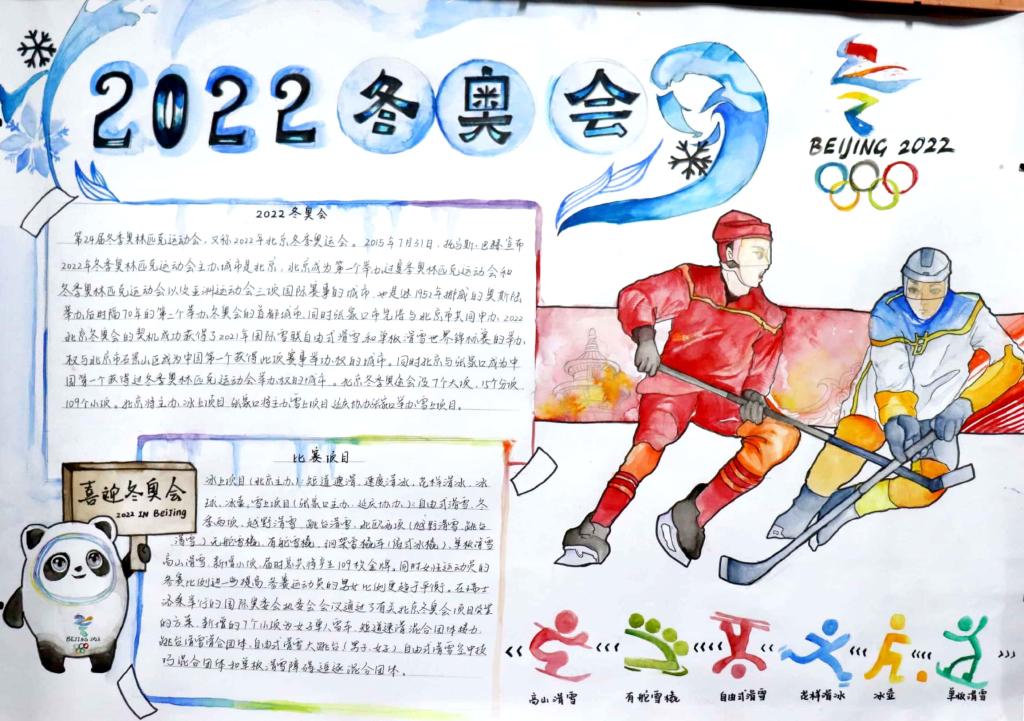 2022冬奥会
BEIJING 2022
2022冬奥会
第24届冬季奥林匹克运动会,又称2022年北京冬季奥运会。2015年7月31日,托马斯·巴赫宣布
2022年冬季奥林匹克运动会主办城市是北京,北京成为第一个举办过夏季奥林匹克运动会和
冬季奥林匹克运动会以及亚洲运动会三项国际赛事的城市,也是继1952年挪威的奥斯陆
举办后时隔70年的第二个举办冬奥会的首都城市。同时张家口市凭借与北京市共同申办2022
北京冬奥会的契机成功获得了2021年国际雪联自由式滑雪和单板滑雪世界锦标赛的举办
权与北京市石景山区成为中国第一个获得此项赛事举办权的城市。同时北京与张家口成为中
国第一个获得过冬季奥林匹克运动会举办权的城市。北京冬季奥运会设7个大项,15个分项
109个小项。北京将主办冰上项目 张家口将主办雪上项目 延庆协办张家口举办雪上项目。
比赛项目
冰上项目(北京主办):短道速滑,速度滑冰,花样滑冰,冰
球,冰壶,雪上项目(张家口主办、延庆协办):自由式滑雪、冬
季两项,越野滑雪 跳台滑雪,北欧两项(越野滑雪、跳台
滑雪)无舵雪橇,有舵雪橇,钢架雪橇车(俯式冰橇),单板滑雪
高山滑雪,新增小项,届时总共将产生109枚金牌。同时女性运动员的
参赛比例进一步提高,参赛运动员的男女比例更趋于平衡。在瑞士
洛桑举行的国际奥委会执委会会议通过了有关北京冬奥会项目设置
的方案,新增的7个小项为女子单人雪车,短道速滑混合团体接力
跳台滑雪混合团体,自由式滑雪大跳台(男子、女子)自由式滑雪空中技
巧混合团体和单板滑雪障碍追逐混合团体。
喜迎冬奥会
2022 IN Beijing
BEIJING 2022
高山滑雪
有舵雪橇
自由式滑雪
花样滑冰
冰壶
单板滑雪